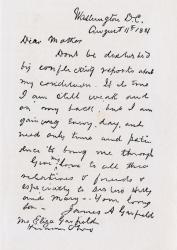 Washington D.C.
August 11th 1881
Dear Mother
Don't be disturbed
by conflicting reports about
my condition. It is true
I am still weak and
on my back, but I am
gaining every day, and
need only time and patience
to bring me through
Give my love to all the
relatives & friends &
especially to sisters Hitty
and Mary — Your loving
son —
James A Garfield
Mrs Eliza Garfield
Hiram Ohio